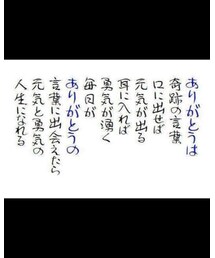 ありがとうは
奇跡の言葉
口に出せば
元気が出る
耳に入れば
勇気が湧く
毎日が
ありがとうの
言葉に出会えたら
元気と勇気の
人生になれる